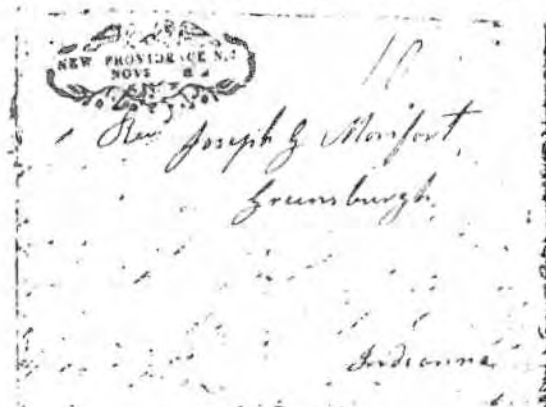 NEW PROVIDENCE N.J
NOV 5
10
Rev Joseph G Monfort
Greensburgh
Indianna